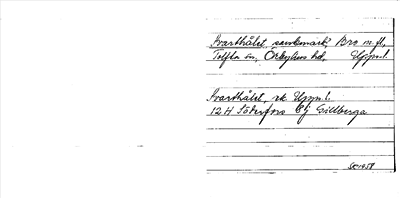 Svarthålet, sankmark, Bro m.fl.,
Tolfta sn, Örbyhus hd, Uppl.
Svarthålet, rk Uppl.
12 H Söderfors 6j Gillberga
SK 1958